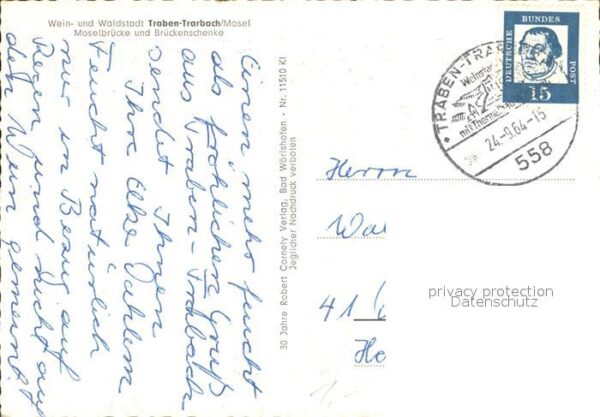 Wein- und Waldstadt Traben-Trarbach/Mosel
Moselbrücke und Brückenschenke
Einen mehr feucht
als fröhlichen Gruß
aus Traben-Trarbach
sendet Ihnen
Ihre Elke Dahlem
Feucht natürlich
nur in Bezug auf
Regen und nicht auf
den Wein gemeint!
30 Jahre Robert Cornely Verlag, Bad Wörishofen - Nr. 11510 Kl
Jeglicher Nachdruck verboten
DEUTSCHE BUNDES POST
15
TRABEN-TRAR
24.-9.64-15
558
Herrn
Wa
41
He
privacy protection
Datenschutz